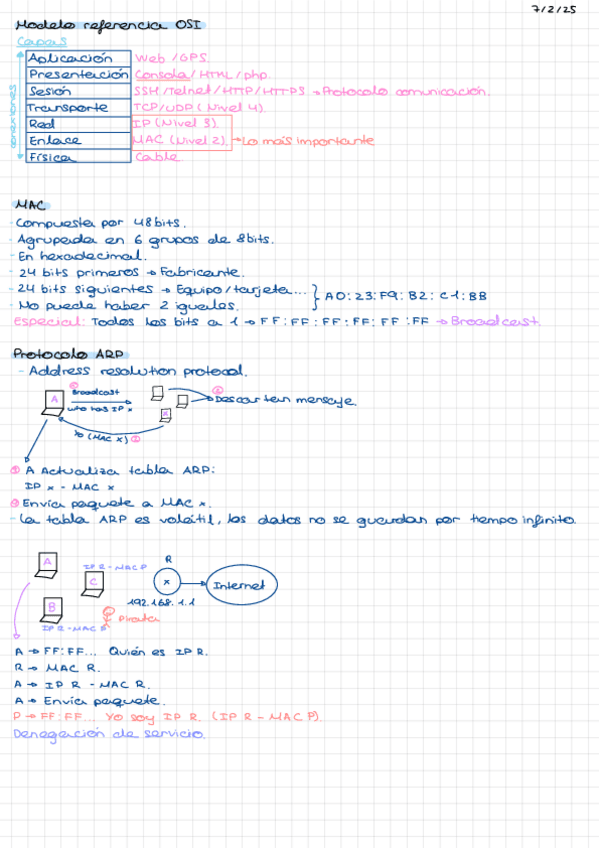 7/2/25
Modelo referencia OSI
Capas
conexiones
Aplicación Web / GPS.
Presentación Consola / HTML / php.
Sesión SSH / Telnet / HTTP / HTTPS → Protocolo comunicación.
Transporte TCP / UDP (Nivel 4).
Red IP (Nivel 3).
Enlace MAC (Nivel 2). → Lo más importante
Física Cable
MAC
- Compuesta por 48 bits.
- Agrupada en 6 grupos de 8 bits.
- En hexadecimal.
- 24 bits primeros → Fabricante.
- 24 bits siguientes → Equipo / tarjeta...
- No puede haber 2 iguales. } A0:23:F9:B2:C1:BB
Especial: Todos los bits a 1 → FF:FF:FF:FF:FF:FF → Broadcast.
Protocolo ARP
- Address resolution protocol.
① Broadcast ②
A → Descartan mensaje.
who has IP x
X
Yo (MAC x)
A Actualiza tabla ARP:
IP x - MAC x
Envía paquete a MAC x.
- La tabla ARP es volátil, los datos no se guardan por tiempo infinito.
A R
IP R - MAC P
C x → Internet
B 192.168.1.1
Pirata
IP R - MAC P
A → FF:FF... Quién es IP R.
R → MAC R.
A → IP R - MAC R.
A → Envía paquete.
P → FF:FF... Yo soy IP R. (IP R - MAC P).
Denegación de servicio.